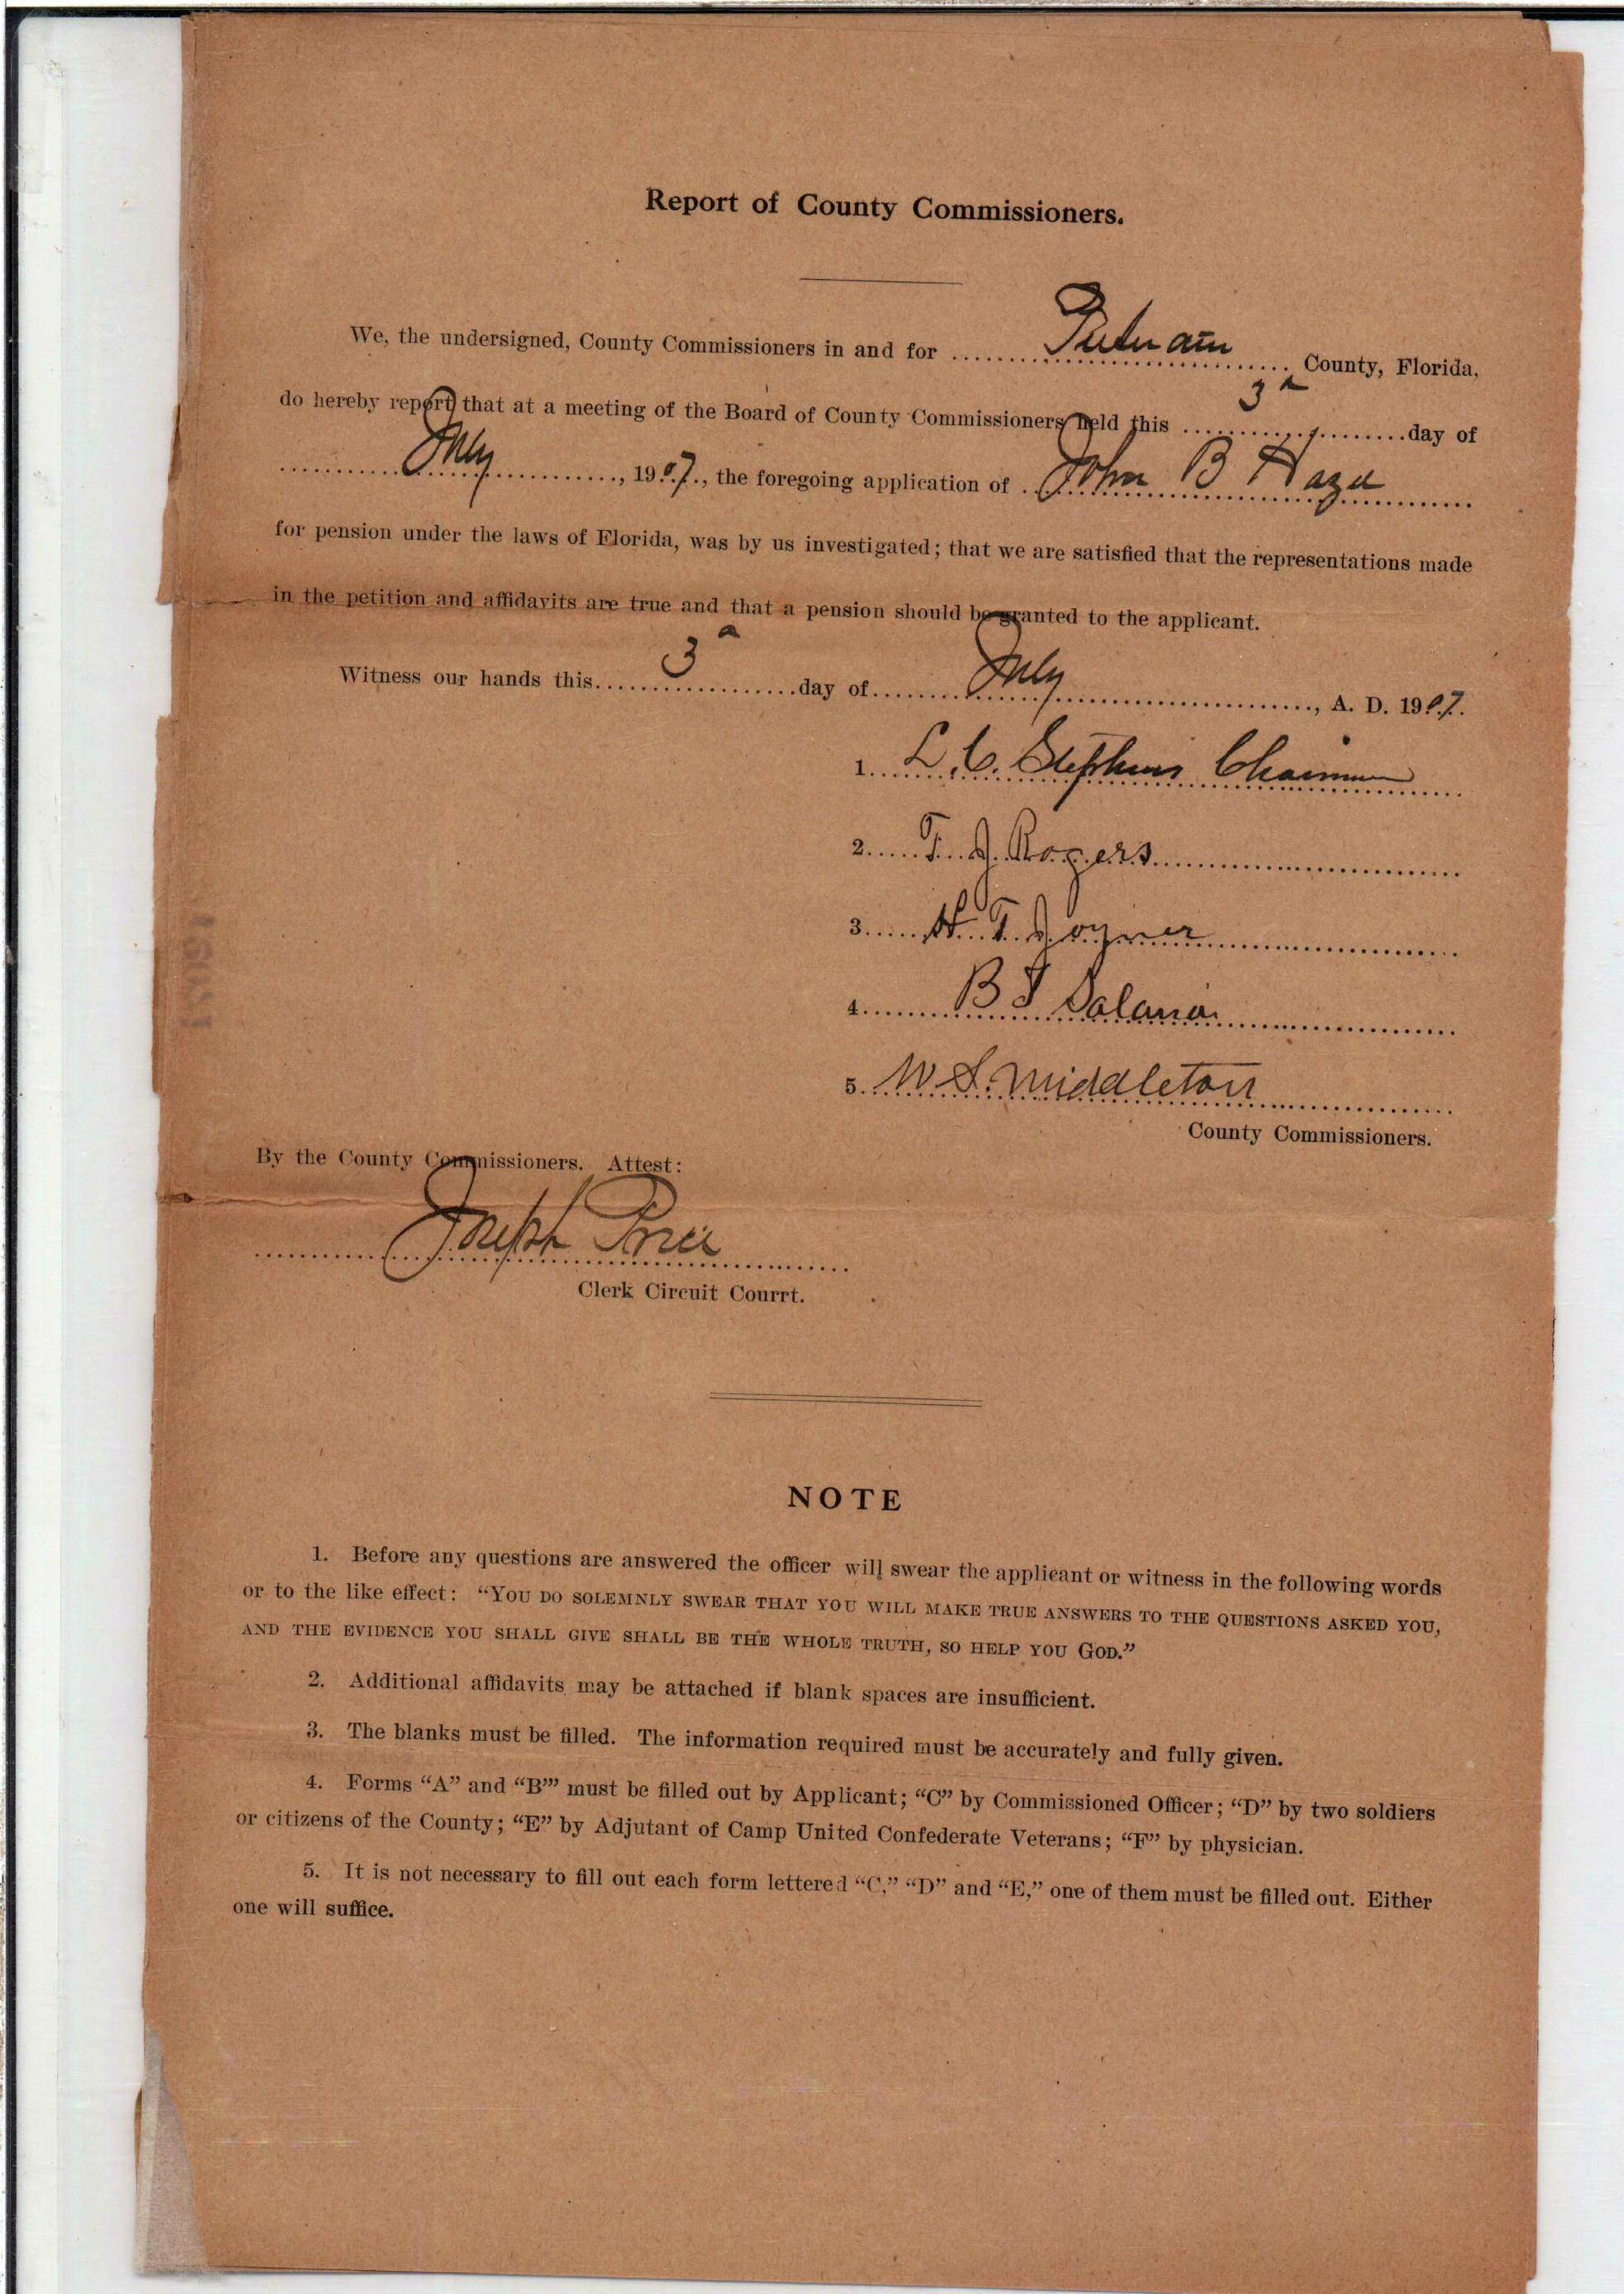 Report of County Commissioners.
We, the undersigned, County Commissioners in and for Putnam County, Florida,
do hereby report that at a meeting of the Board of County Commissioners held this 3d day of
July, 1907, the foregoing application of John B
for pension under the laws of Florida, was by us investigated; that we are satisfied that the representations made
in the petition and affidavits are true and that a pension should be granted to the applicant.
Witness our hands this 3d day of July, A. D. 1907.
1. L. C. Stephens Chairman
2. T. J. Rogers
3. H. T. Joyner
4. B J
5. W. S. Middleton
County Commissioners.
By the County Commissioners. Attest:
Joseph Price
Clerk Circuit Courrt.
NOTE
1. Before any questions are answered the officer will swear the applicant or witness in the following words
or to the like effect: “YOU DO SOLEMNLY SWEAR THAT YOU WILL MAKE TRUE ANSWERS TO THE QUESTIONS ASKED YOU,
AND THE EVIDENCE YOU SHALL GIVE SHALL BE THE WHOLE TRUTH, SO HELP YOU GOD.”
2. Additional affidavits may be attached if blank spaces are insufficient.
3. The blanks must be filled. The information required must be accurately and fully given.
4. Forms “A” and “B”’ must be filled out by Applicant; “C” by Commissioned Officer; “D” by two soldiers
or citizens of the County; “E” by Adjutant of Camp United Confederate Veterans; “F” by physician.
5. It is not necessary to fill out each form lettered “C,” “D” and “E,” one of them must be filled out. Either
one will suffice.